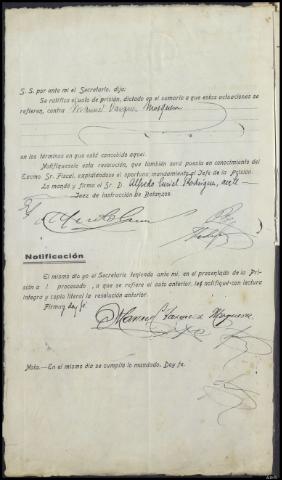 S. S. por ante mí el Secretario, dijo:
Se ratifica el auto de prisión, dictado en el sumario a que estas actuaciones se
refieren, contra Manuel Vazquez Mosquera
en los términos en que está concebido aquel.
Notifíquesele esta resolución, que también será puesta en conocimiento del
Excmo Sr. Fiscal, expidiéndose el oportuno mandamiento al Jefe de la Prisión.
Lo mandó y firma el Sr. D. Alfredo Rodríguez,
Juez de Instrucción de Betanzos.
Notificación
El mismo día yo el Secretario teniendo ante mí, en presencia de la Pri-
sión a l procesado , a que se refiere el auto anterior, les notifiqué con lectura
íntegra y copia literal la resolución anterior.
Firma, doy fé
Manuel Vazquez Mosquera
Nota.—En el mismo día se cumplió lo mandado. Doy fe.